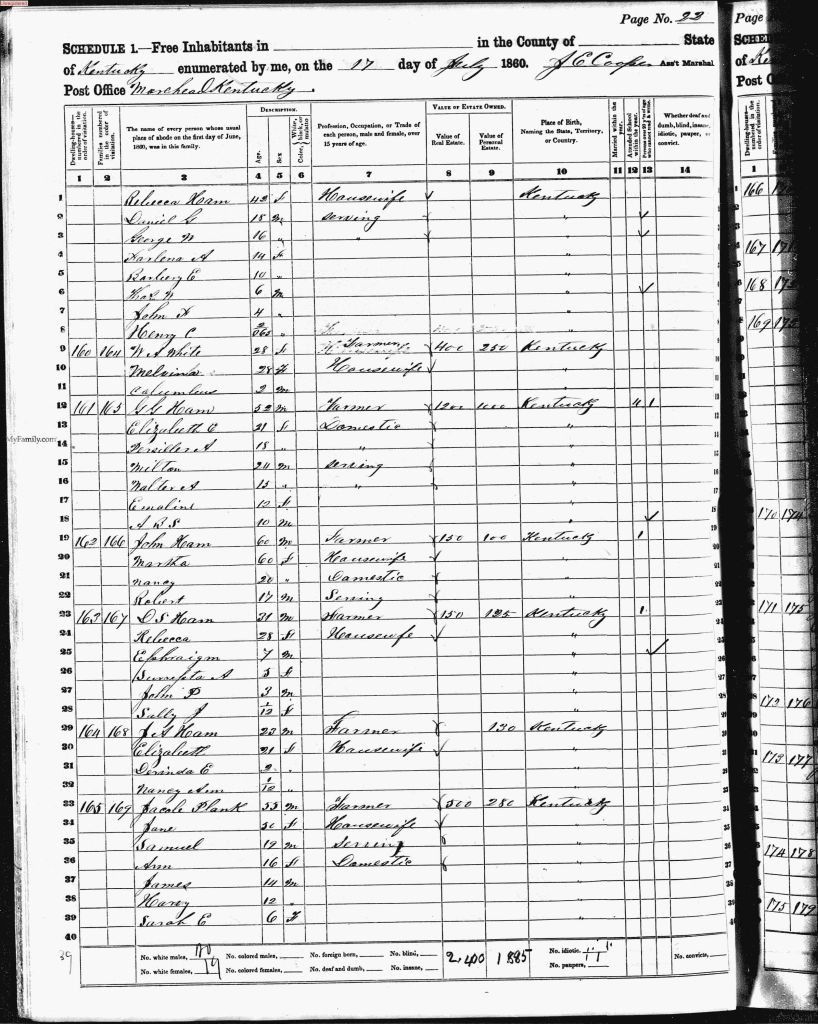 Page No. 22
SCHEDULE 1.—Free Inhabitants in in the County of State
of Kentucky enumerated by me, on the 17 day of July 1860. J E Cooper Ass't Marshal
Post Office Morehead Kentucky.
Dwelling-houses—numbered in the order of visitation.
Families numbered in the order of visitation.
The name of every person whose usual place of abode on the first day of June, 1860, was in this family.
DESCRIPTION.
Age.
Sex
Color, White, black, or mulatto
Profession, Occupation, or Trade of each person, male and female, over 15 years of age.
VALUE OF ESTATE OWNED.
Value of Real Estate.
Value of Personal Estate.
Place of Birth, Naming the State, Territory, or Country.
Married within the year.
Attended School within the year.
Whether deaf and dumb, blind, insane, idiotic, pauper, or convict.
1 2 3 4 5 6 7 8 9 10 11 12 13 14
1 Rebecca Ham 42 f Housewife Kentucky
2 Daniel G 18 m serving "
3 George W 16 " " "
4 A 14 f "
5 E 10 " "
6 Thos. W 6 m "
7 John 4 " "
8 Henry C " "
9 160 164 W A White 28 Farmer 400 250 Kentucky
10 Melvina 28 f Housewife "
11 Columbus 2 m "
12 161 165 G G Ham 52 m Farmer 1200 1000 Kentucky
13 Elizabeth E 21 f Domestic "
14 A 18 " " "
15 Milton 24 m serving "
16 Walter A 15 " " "
17 Emaline 12 f "
18 A B S 10 m "
19 162 166 John Ham 60 m Farmer 150 100 Kentucky 1
20 Martha 60 f Housewife "
21 Nancy 20 " Domestic "
22 Robert 17 m Serving "
23 163 167 D S Ham 31 m Farmer 150 125 Kentucky 1
24 Rebecca 28 f Housewife "
25 Ephraigm 7 m "
26 A 5 f "
27 John P 3 m "
28 Sally J 1/12 f "
29 164 168 J A Ham 23 m Farmer 130 Kentucky
30 Elizabeth 21 f Housewife "
31 Dorinda E 2 " "
32 Nancy Ann 1/12 " "
33 165 169 Jacob Plank 55 m Farmer 500 280 Kentucky
34 Jane 50 f Housewife "
35 Samuel 19 m Serving "
36 Ann 16 f Domestic "
37 James 14 m "
38 Harvy 12 " "
39 Sarah E 6 f "
40
39 No. white males, No. colored males, No. foreign born, No. blind, 2,400 1885 No. idiotic, No. convicts,
No. white females, 19 No. colored females, No. deaf and dumb, No. insane, No. paupers,
MyFamily.com
Page
SCHED
of
Post O
1
166
167
168
169
170 174
171 175
172 176
173 177
174 178
175 179